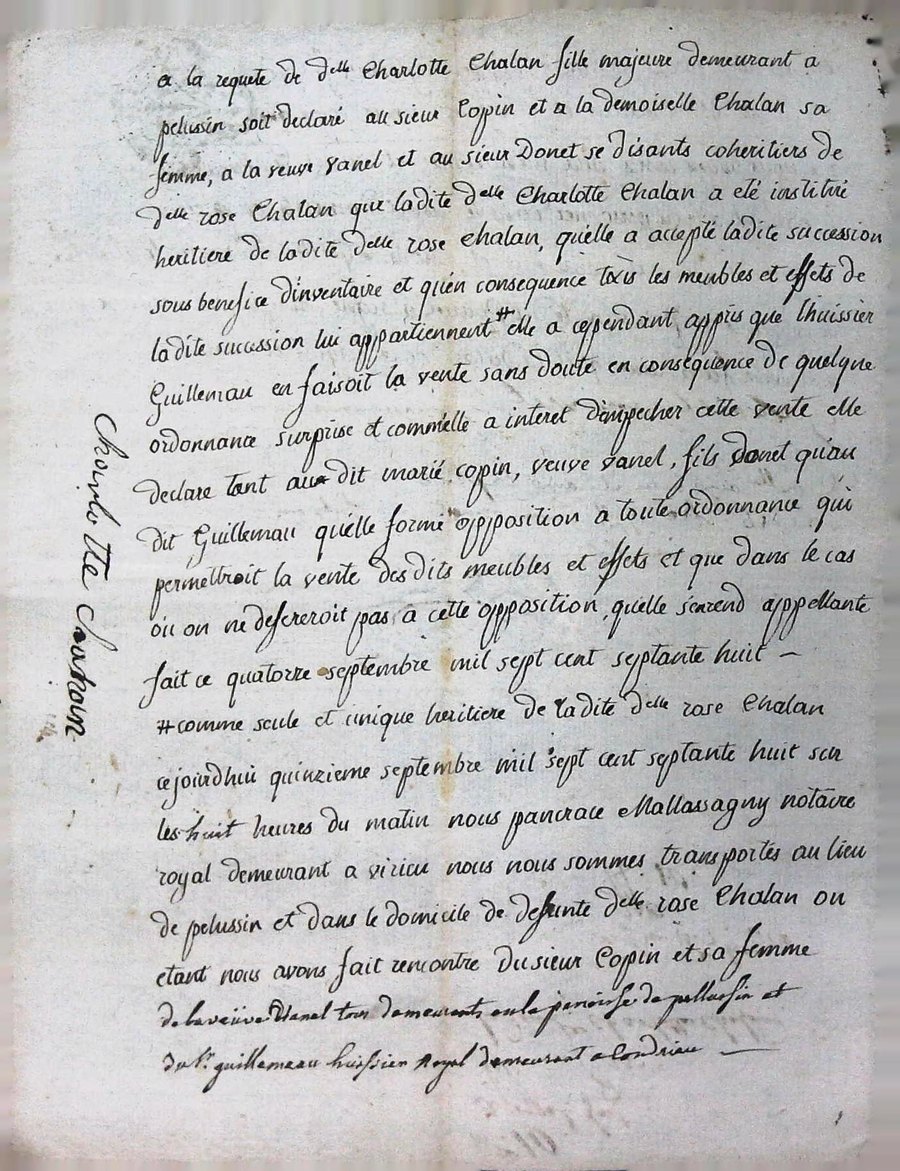 a la requete de d^elle Charlotte Chalan fille majeure demeurant a
pelussin soit declaré au sieur Copin et a la demoiselle Chalan sa
femme, a la veuve vanel et au sieur Donet se disants coheritiers de
d^elle rose Chalan que ladite d^elle Charlotte Chalan a eté institué
heritiere de ladite d^elle rose chalan, qu'elle a accepté ladite succession
sous benefice d'inventaire et qu'en consequence les meubles et effets de
ladite succession lui appartiennent # elle a cependant appris que l'huissier
Guillemau en faisoit la vente sans doute en consequence de quelque
ordonnance surprise et comm'elle a interet d'empecher cette vente elle
declare tant au dit marié copin, veuve vanel, fils donet qu'au
dit Guillemau qu'elle forme opposition a toute ordonnance qui
permettroit la vente des dits meubles et effets et que dans le cas
ou on ne defereroit pas a cette opposition, qu'elle s'enrend appellante
fait ce quatorze septembre mil sept cent septante huit —
# comme seule et unique heritiere de ladite d^elle rose Chalan
cejourdhui quinzieme septembre mil sept cent septante huit sur
les huit heures du matin nous pancrace Mallassagny notaire
royal demeurant a virieu nous nous sommes transportés au lieu
de pelussin et dans le domicile de defunte d^elle rose Chalan ou
etant nous avons fait rencontre du sieur Copin et sa femme
de la veuve Vanel tous demeurants en la paroisse de pellussin et
du Sr. guillemeau huissier Royal demeurant a Condrieu —
Charlotte